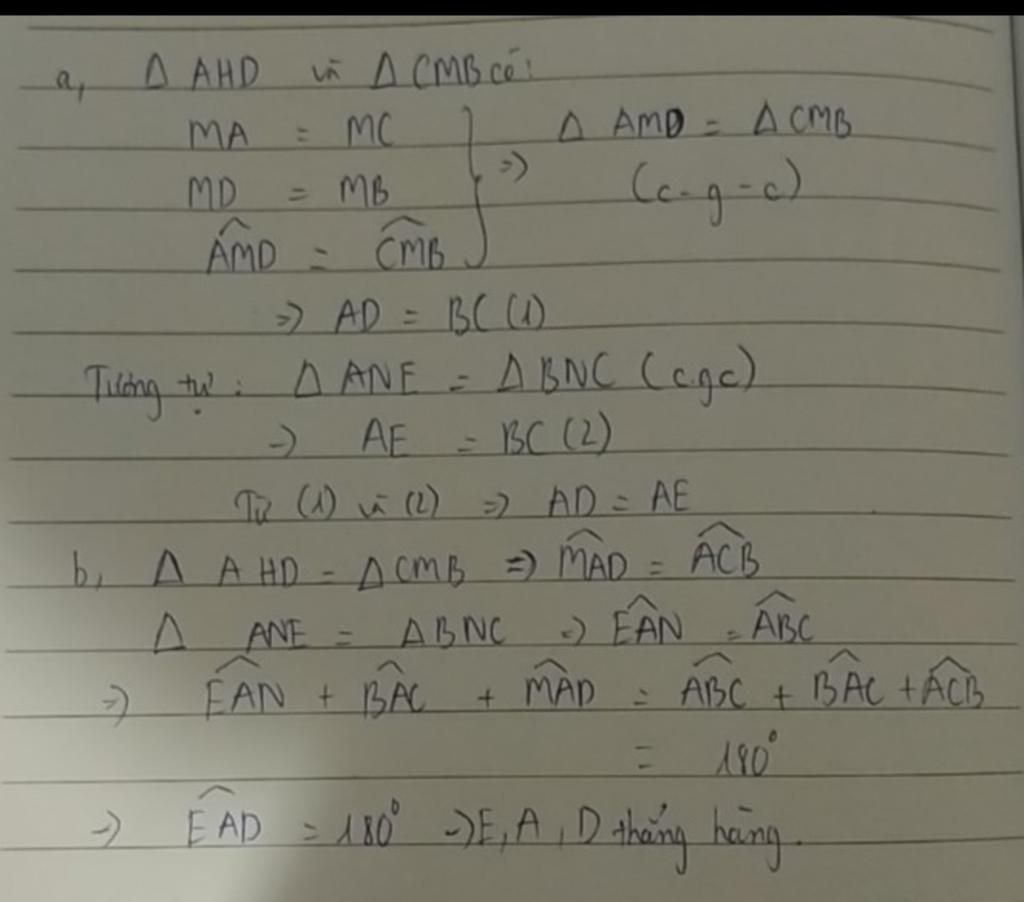 a, Δ AHD và Δ CMB có:
MA = MC
MD = MB
\widehat{AMD} = \widehat{CMB}
} => Δ AMD = Δ CMB
(c-g-c)
=> AD = BC (1)
Tương tự: Δ ANE = Δ BNC (c.g.c)
=> AE = BC (2)
Từ (1) và (2) => AD = AE
b, Δ AHD = Δ CMB => \widehat{MAD} = \widehat{ACB}
Δ ANE = Δ BNC => \widehat{EAN} = \widehat{ABC}
=> \widehat{EAN} + \widehat{BAC} + \widehat{MAD} = \widehat{ABC} + \widehat{BAC} + \widehat{ACB}
= 180°
=> \widehat{EAD} = 180° => E, A, D thẳng hàng.